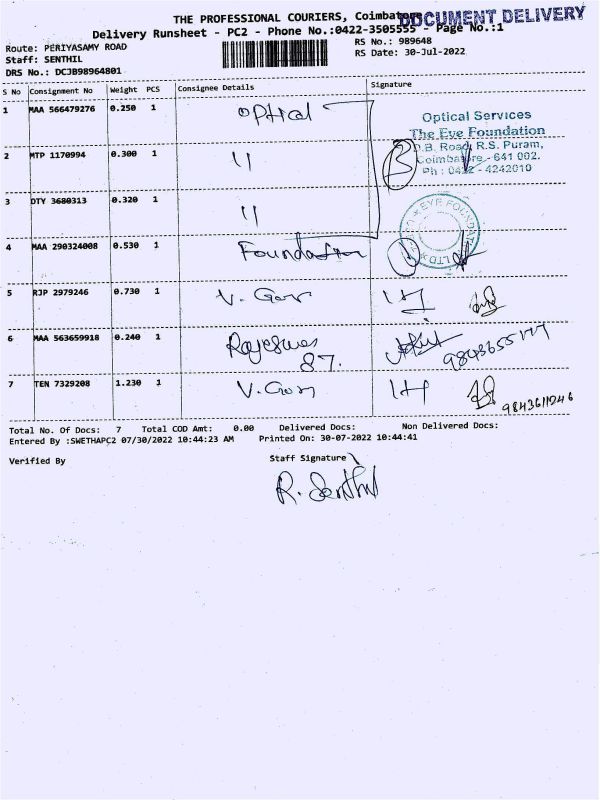 THE PROFESSIONAL COURIERS, Coimbatore
DOCUMENT DELIVERY
Delivery Runsheet - PC2 - Phone No.:0422-3505555 - Page No.:1
Route: PERIYASAMY ROAD
RS No.: 989648
Staff: SENTHIL
RS Date: 30-Jul-2022
DRS No.: DCJB98964801
S No Consignment No Weight PCS Consignee Details Signature
1 MAA 566479276 0.250 1 Optical
Optical Services
The Eye Foundation
D.B. Road, R.S. Puram,
Coimbatore - 641 002.
Ph : 0422 - 4242010
2 MTP 1170994 0.300 1 11 3
3 DTY 3680313 0.320 1 11
EYE FOUNDATION LTD
4 MAA 290324008 0.530 1 Foundation 1
5 RJP 2979246 0.730 1
6 MAA 563659918 0.240 1 87.
7 TEN 7329208 1.230 1 9843611946
Total No. Of Docs: 7 Total COD Amt: 0.00 Delivered Docs: Non Delivered Docs:
Entered By :SWETHAPC2 07/30/2022 10:44:23 AM Printed On: 30-07-2022 10:44:41
Verified By Staff Signature
R. Senthil